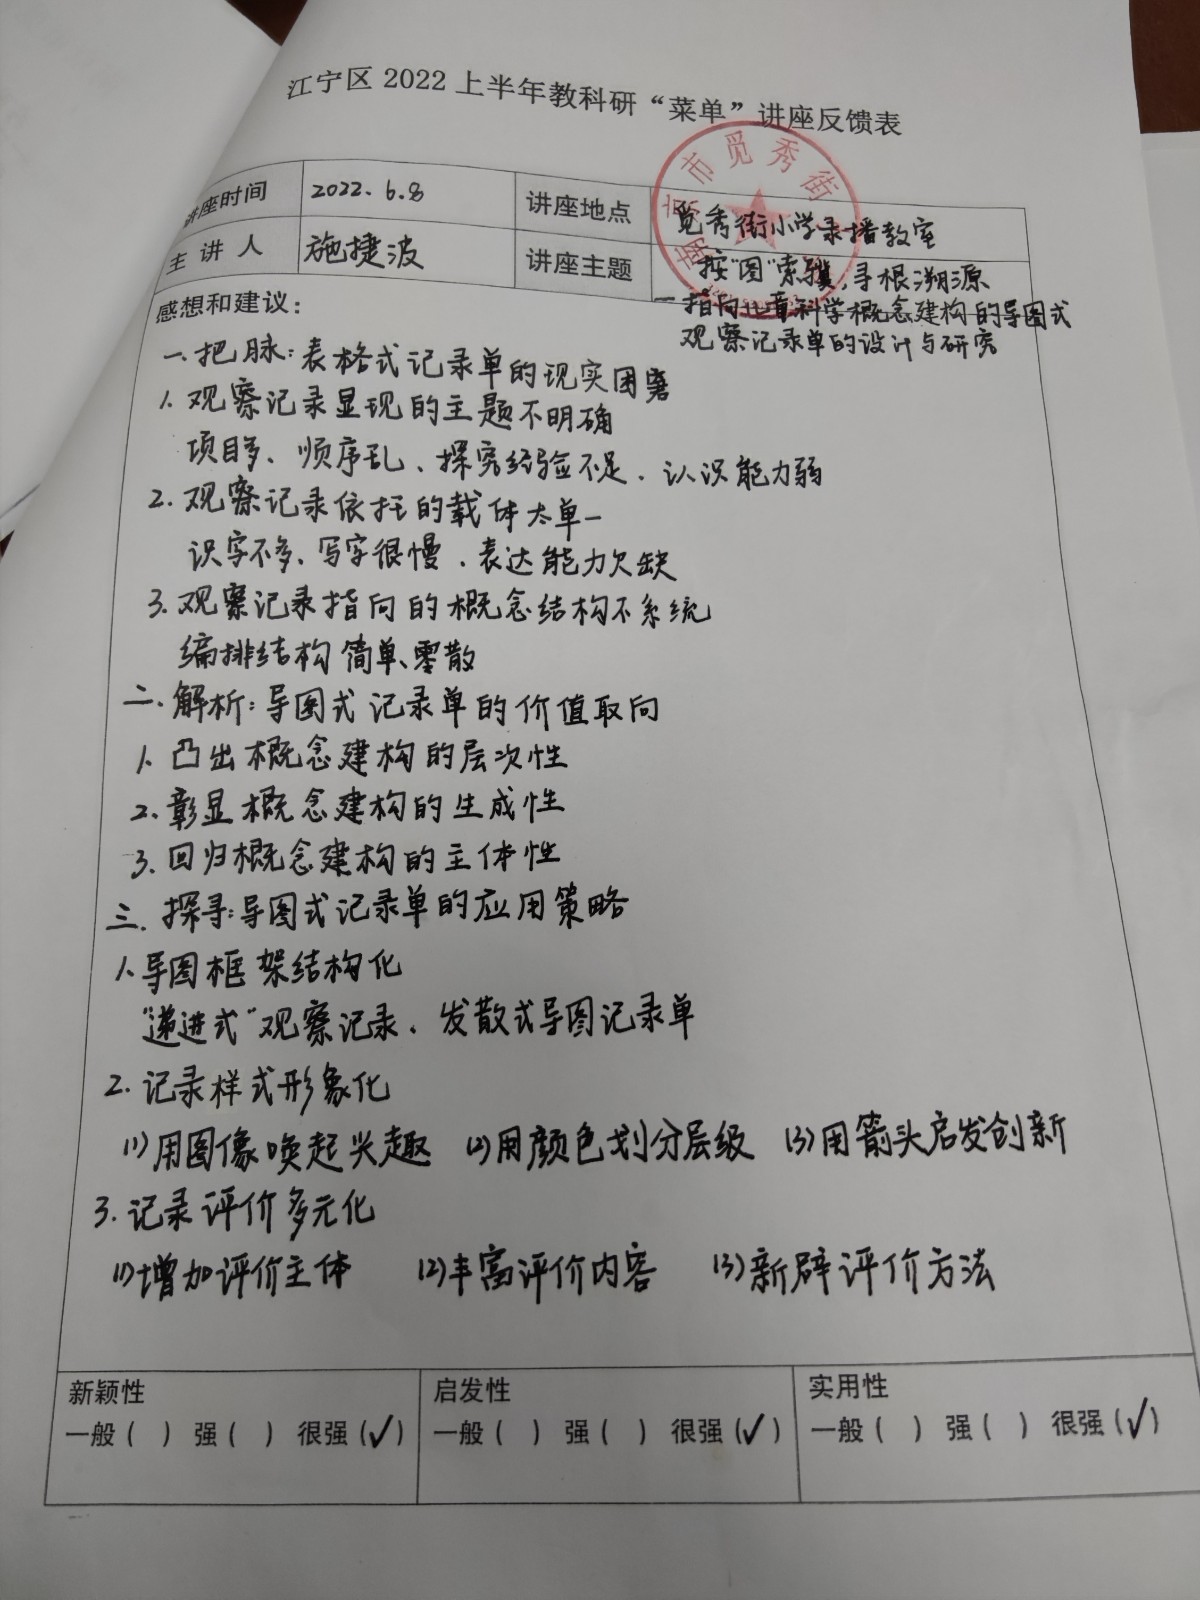 江宁区 2022 上半年教科研“菜单”讲座反馈表
讲座时间 2022.6.8 讲座地点 觅秀街小学录播教室
主讲人 施捷波 讲座主题 按“图”索骥,寻根溯源
—指向儿童科学概念建构的导图式
观察记录单的设计与研究
市觅秀街
感想和建议:
一.把脉:表格式记录单的现实困窘
1.观察记录显现的主题不明确
项目多、顺序乱、探究经验不足、认识能力弱
2.观察记录依托的载体太单一
识字不多、写字很慢、表达能力欠缺
3.观察记录指向的概念结构不系统
编排结构简单、零散
二.解析:导图式记录单的价值取向
1.凸出概念建构的层次性
2.彰显概念建构的生成性
3.回归概念建构的主体性
三.探寻:导图式记录单的应用策略
1.导图框架结构化
“递进式”观察记录、发散式导图记录单
2.记录样式形象化
(1)用图像唤起兴趣 (2)用颜色划分层级 (3)用箭头启发创新
3.记录评价多元化
(1)增加评价主体 (2)丰富评价内容 (3)新辟评价方法
新颖性 启发性 实用性
一般( ) 强( ) 很强(✓) 一般( ) 强( ) 很强(✓) 一般( ) 强( ) 很强(✓)